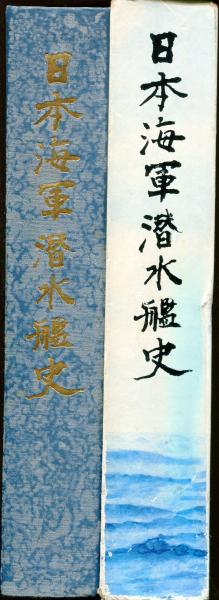 日本海軍潜水艦史
日本海軍潜水艦史